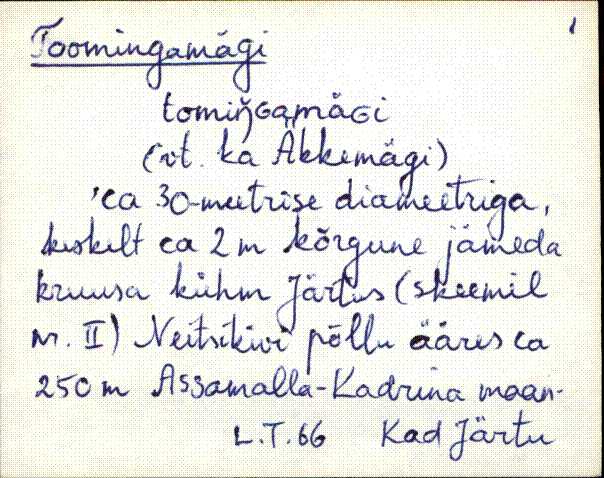 Toomingamägi 1
tomiŋ̆Gamäɢi
(vt. ka Äkkemägi)
'ca 30-meetrise diameetriga,
keskelt ca 2 m kõrgune jämeda
kruusa kühm Järtus (skeemil
nr. II) Neitsikivi põllu ääres ca
250 m Assamalla-Kadrina maan-
L.T. 66 Kad Järtu